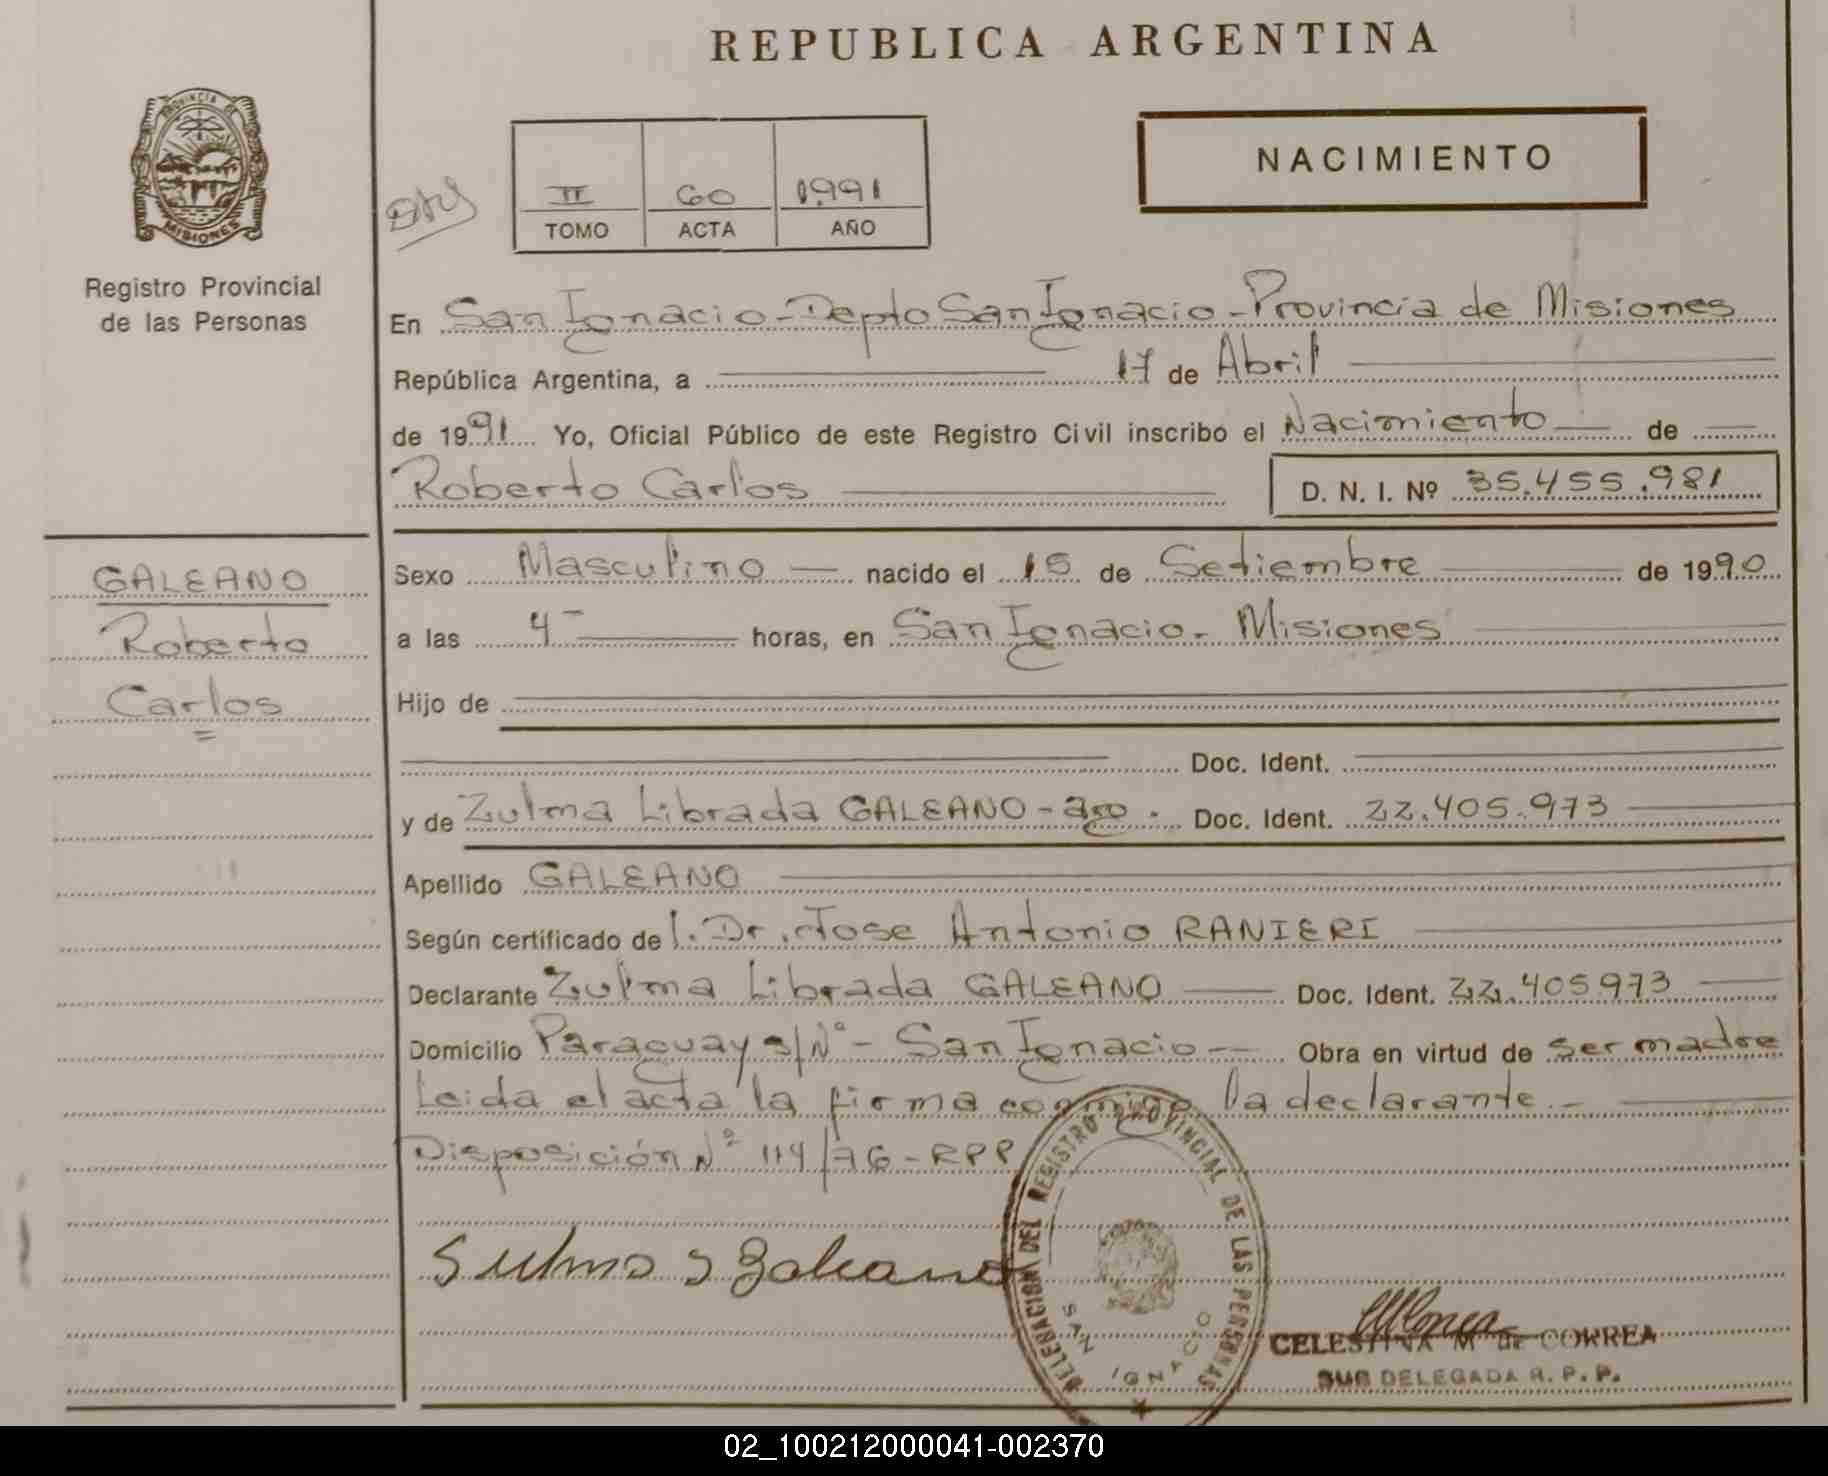 REPUBLICA ARGENTINA
PROVINCIA DE
MISIONES
Registro Provincial
de las Personas
II 60 1.991
TOMO ACTA AÑO
NACIMIENTO
En San Ignacio - Depto San Ignacio - Provincia de Misiones
República Argentina, a 17 de Abril
de 1991 Yo, Oficial Público de este Registro Civil inscribo el Nacimiento de
Roberto Carlos D. N. I. Nº 35.455.981
GALEANO
Roberto
Carlos
Sexo Masculino nacido el 15 de Setiembre de 1990
a las 4 horas, en San Ignacio - Misiones
Hijo de
Doc. Ident.
y de Zulma Librada GALEANO - arg. Doc. Ident. 22.405.973
Apellido GALEANO
Según certificado del. Dr. Jose Antonio RANIERI
Declarante Zulma Librada GALEANO Doc. Ident. 22.405973
Domicilio Paraguay s/Nº - San Ignacio Obra en virtud de ser madre
Leida el acta la firma conmigo la declarante.-
Disposición Nº 114/76 - RPP
DELEGACION DEL REGISTRO PROVINCIAL DE LAS PERSONAS
SAN IGNACIO
CELESTINA M de CORREA
SUB DELEGADA R. P. P.
02_100212000041-002370